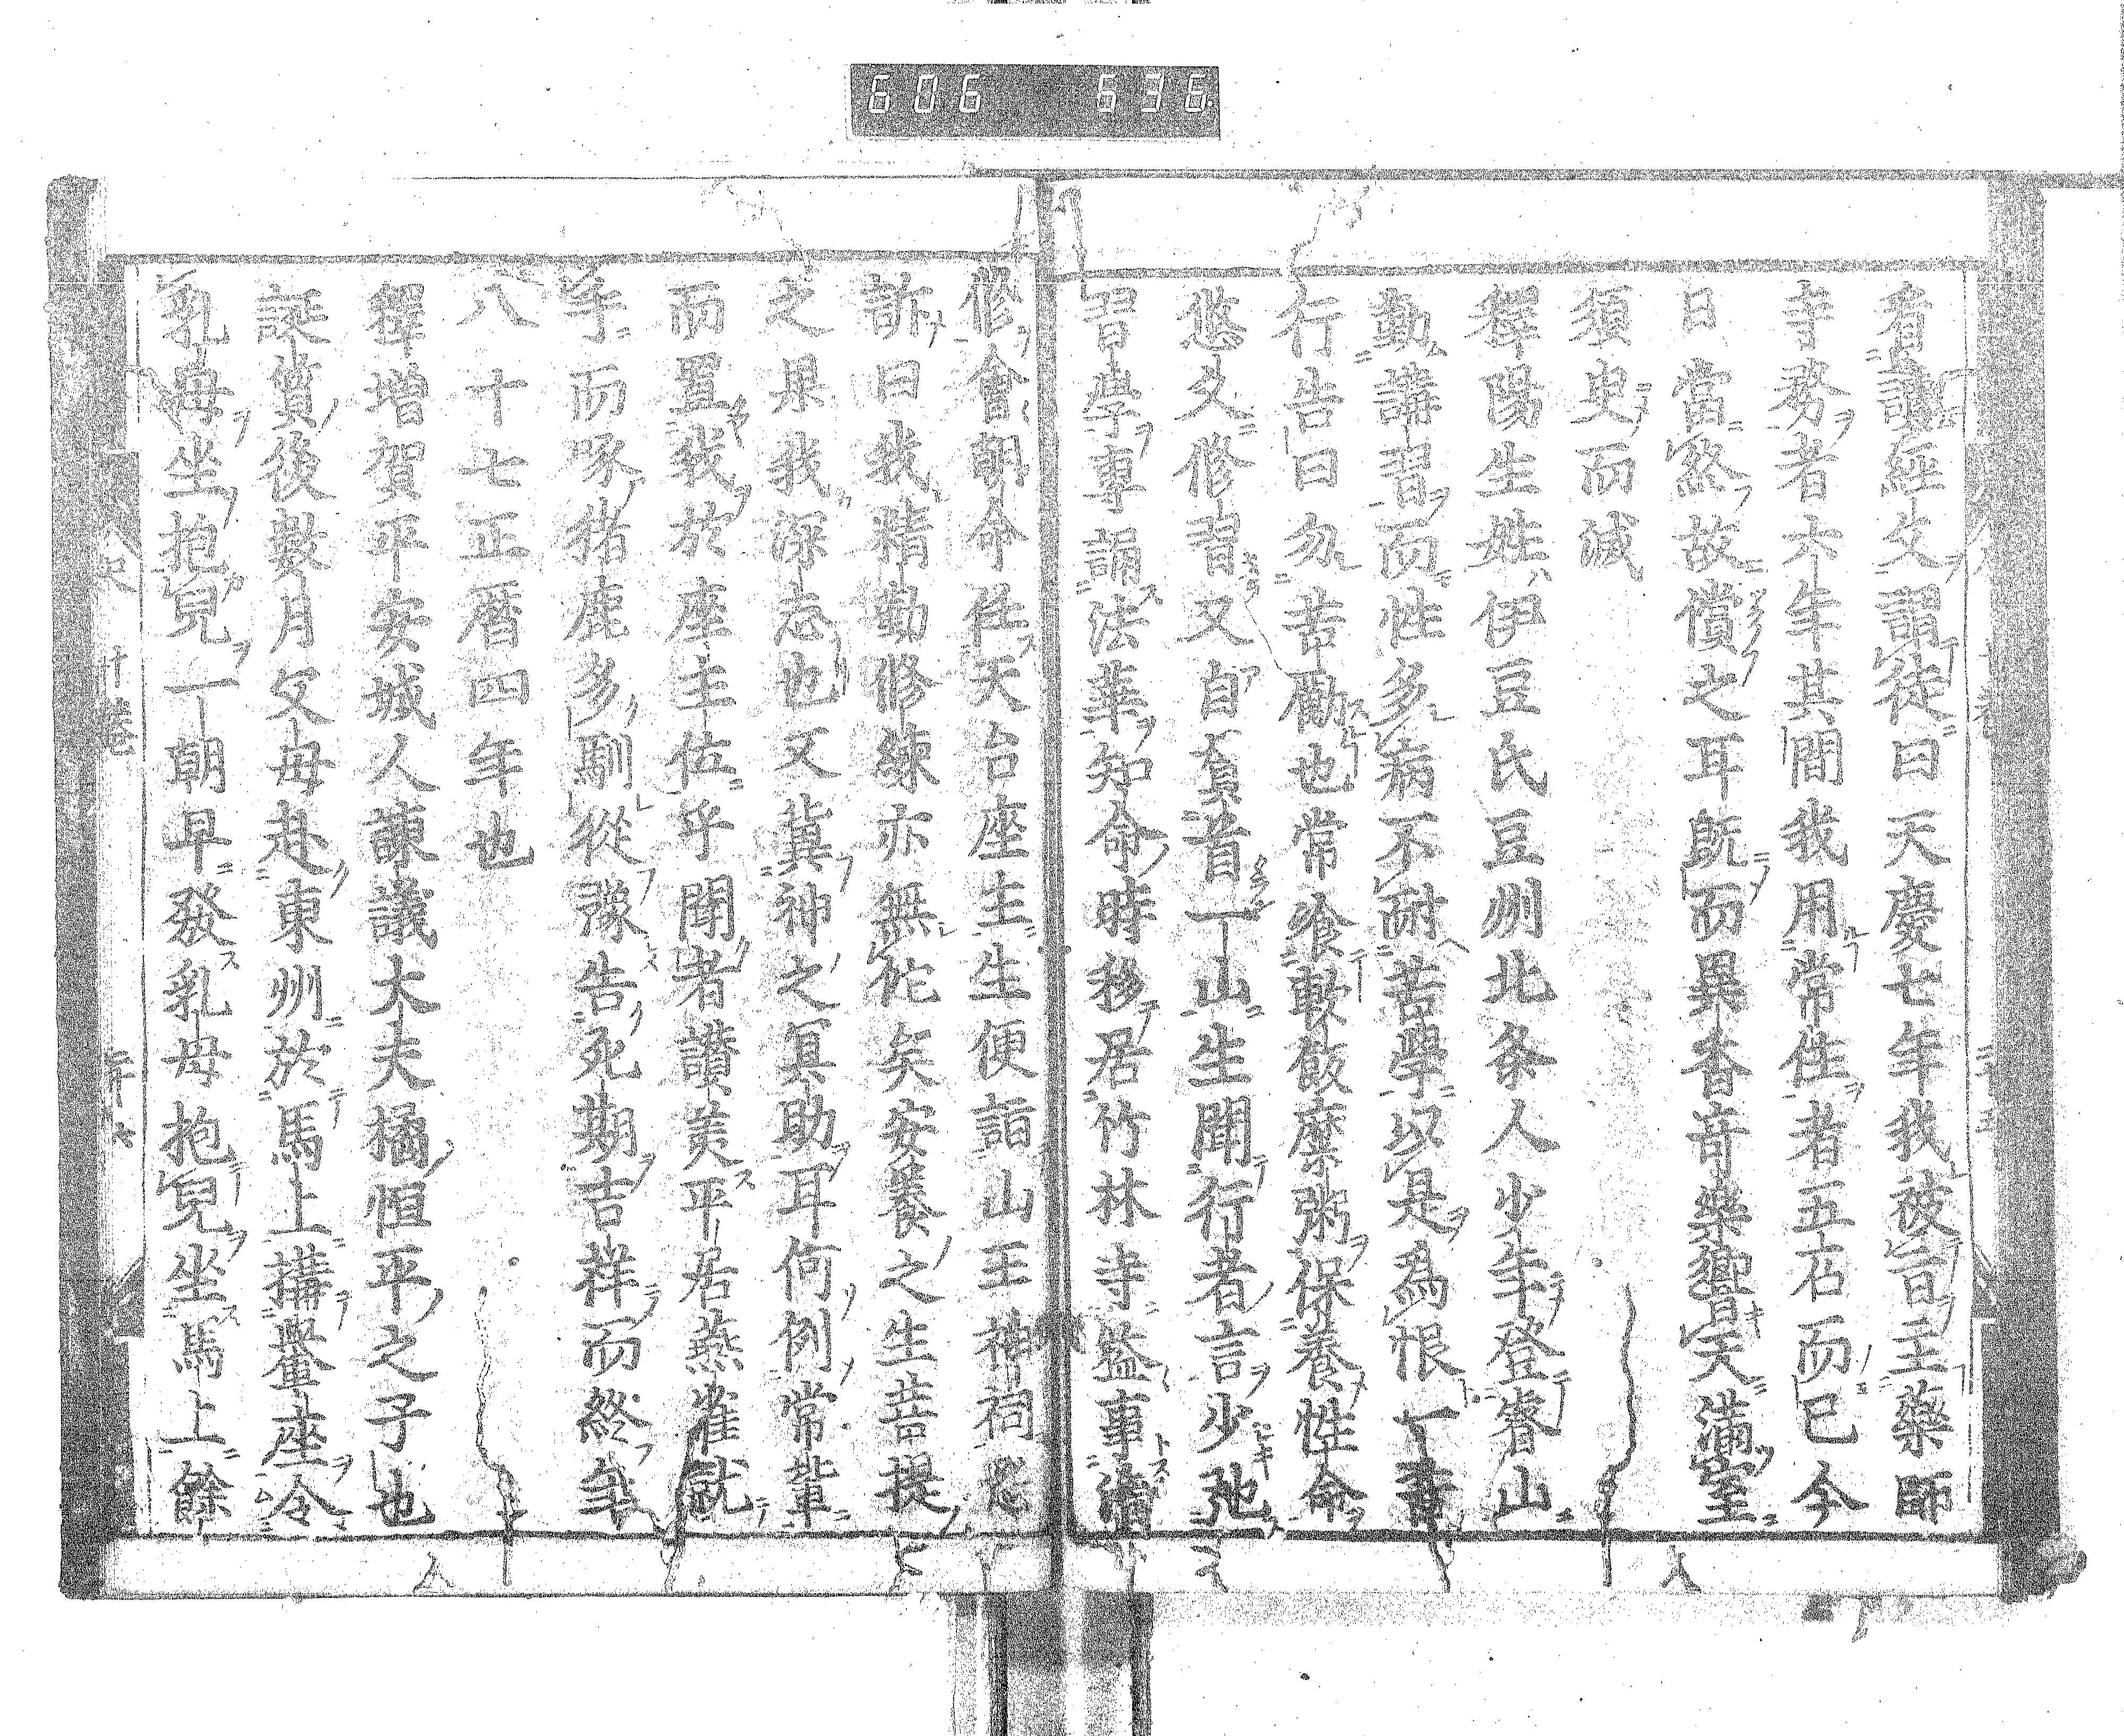 606 636
看讀經文謂徒曰天慶七年我被旨主藥師
寺務者六年其間我用常住者五石而已今
日當終故償之耳既而異香奇樂響天滿室
須臾而滅
釋陽生姓伊豆氏豆州北条人少年登睿山
勤講習而性多病不耐苦學以是爲恨一耆
行告曰勿苦勵也常飡軟飯糜粥保養性命
悠久修習又自負首一山生聞行者言少弛
習學專誦法華知命時移居竹林寺鑑事濟
修會朝命任天台座主生便詣山王神祠愁
訴曰我精勤修練亦無佗矣安養之生菩提
之果我深志也又冀神之冥助耳何例常輩
而置我於座主位乎聞者讃美平居燕雀就
手而啄猪鹿多馴從豫告死期吉祥而終年
八十七正曆四年也
釋增賀平安城人諫議大夫橘恒平之子也
誕質後數月父母赴東州於馬上搆轝座令
乳母坐抱兒一朝早發乳母抱兒坐馬上餘
史 十卷 二十六